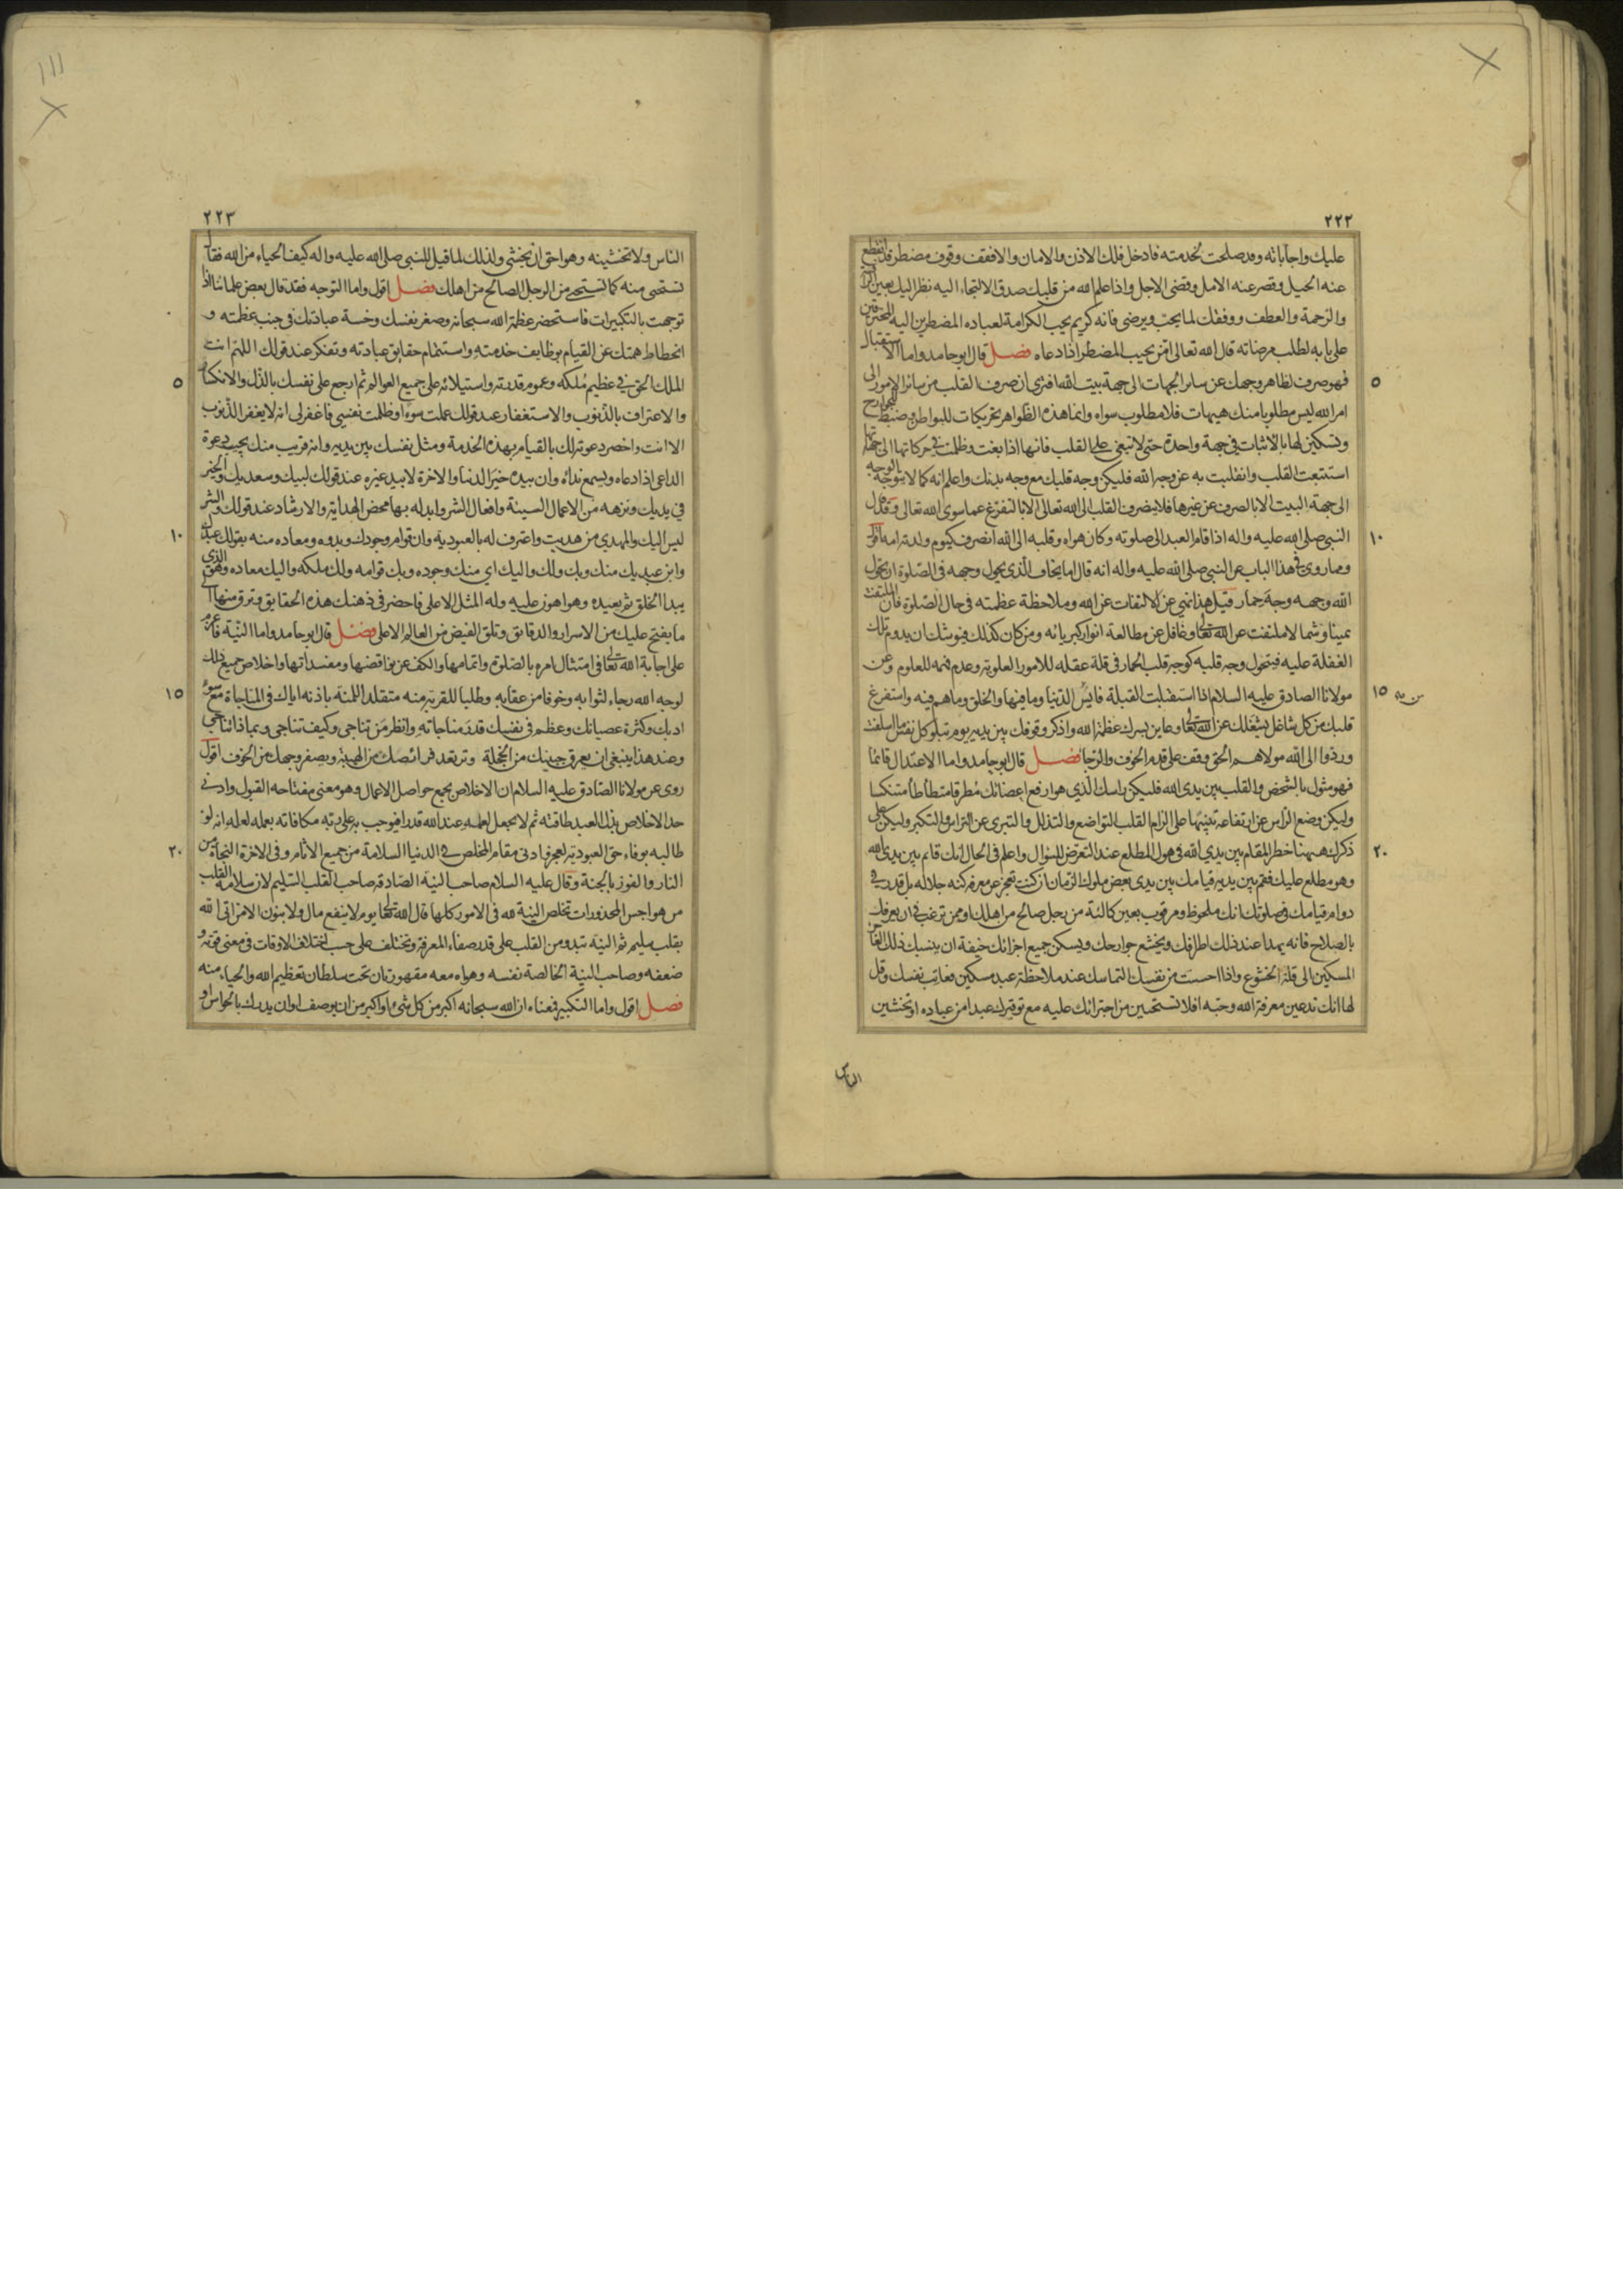 ٢٢٢
عليك واجاباته وقد صلحت لخدمته فادخل فلك الاذن والامان والافقف وقوف مضطر قد انقطع
عنه الحيل وقصر عنه الامل وقضى الاجل واذا علم الله من قلبك صدق الالتجاء اليه نظر اليك بعين الرأفة
والرحمة والعطف ووفقك لما يحب ويرضى فانه كريم يحب الكرامة لعباده المضطرين اليه المحترقين
على بابه لطلب مرضاته قال الله تعالى امّن يجيب المضطر اذا دعاه فصل قال ابو حامد واما الاستقبال
فهو صرف لظاهر وجهك عن سائر الجهات الى جهة بيت الله افترى ان صرف القلب من سائر الامور الى
امر الله ليس مطلوبا منك هيهات فلا مطلوب سواه وانما هذه الظواهر تحريكات للبواطن وضبط للجوارح
وتسكين لها بالاثبات في جهة واحدة حتى لا تبغى على القلب فانها اذا بغت وظلمت في حركاتها الى جهاتها
استتبعت القلب وانقلبت به عن وجه الله فليكن وجه قلبك مع وجه بدنك واعلم انه كما لا يتوجه الوجه
الى جهة البيت الا بالصرف عن غيرها فلا ينصرف القلب الى الله تعالى الا بالتفرغ عما سوى الله تعالى وقد قال
النبي صلى الله عليه واله اذا قام العبد الى صلوته وكان هواه وقلبه الى الله انصرف كيوم ولدته امه اقول
ومما روى في هذا الباب عن النبي صلى الله عليه واله انه قال اما يخاف الّذي يحول وجهه في الصّلوة ان يحول
الله وجهه وجه حمار قيل هذا نهى عن الالتفات عن الله وملاحظة عظمته في حال الصّلوة فان الملتفت
يمينا وشمالا ملتفت عن الله تعالى وغافل عن مطالعة انوار كبريائه ومن كان كذلك فيوشك ان يدوم تلك
الغفلة عليه فيتحول وجه قلبه كوجه قلب الحمار في قلة عقله للامور العلوية وعدم فهمه للعلوم وعن
مولانا الصادق عليه السلام اذا استقبلت القبلة فايس الدّنيا وما فيها والخلق وما هم فيه واستفرغ
قلبك من كل شاغل يشغلك عن الله تعالى وعاين بسرك عظمة الله واذكر وقوفك بين يديه يوم تبلو كل نفس ما اسلفت
وردّوا الى الله مولاهم الحق وقف على قدم الخوف والرّجا فصل قال ابو حامد واما الاعتدال قائما
فهو مثول بالشخص والقلب بين يدى الله فليكن راسك الّذي هو ارفع اعضائك مُطرقا متطأطأ متنكسا
وليكن وضع الرّاس عن ارتفاعه تنبيهًا على الزام القلب التواضع والتذلل والتبرى عن التراس والتكبر وليكن على
ذكرك ههنا خطر المقام بين يدي الله في هول المطلع عند التعرّض للسؤال واعلم في الحال انك قائم بين يدى الله
وهو مطلع عليك فقم بين يديه قيامك بين يدى بعض ملوك الزمان ان كنت تعجز عن معرفة كنه جلاله بل قدر في
دوام قيامك في صلوتك انك ملحوظ ومرقوب بعين كالئة من رجل صالح من اهلك او ممن ترغب في ان يعرفك
بالصلاح فانه يهدا عند ذلك اطرافك ويخشع جوارحك ويسكن جميع اجزائك خيفة ان ينسبك ذلك العاجز
المسكين الى قلة الخشوع واذا احسست من نفسك التماسك عند ملاحظة عبد مسكين فعاتب نفسك وقل
لها انك تدعين معرفة الله وحبّه افلا تستحين من اجترائك عليه مع توقيرك عبدا من عباده او تخشين
الناس
٥
١٠
١٥
٢٠
٢٢٣
الناس ولا تخشينه وهو احق ان يخشى ولذلك لما قيل للنبي صلى الله عليه واله كيف الحياء من الله فقال
تستحى منه كما تستحيى من الرجل الصالح من اهلك فصل اقول واما التوجه فقد قال بعض علمائنا اذا
توجهت بالتكبيرات فاستحضر عظمة الله سبحانه وصغر نفسك وخسة عبادتك في جنب عظمته و
انحطاط همتك عن القيام بوظايف خدمته واستتمام حقايق عبادته وتفكر عند قولك اللهم انت
الملك الحق في عظيم مُلكه وعموم قدرته واستيلائه على جميع العوالم ثم ارجع على نفسك بالذّل والانكسار
والاعتراف بالذّنوب والاستغفار عند قولك عملت سوءًا وظلمت نفسي فاغفر لى انه لا يغفر الذّنوب
الا انت واحضر دعوته لك بالقيام بهذه الخدمة ومثل نفسك بين يديه وانه قريب منك يجيب دعوة
الداعى اذا دعاه ويسمع نداءه وان بيده خير الدنيا والاخرة لا بيد غيره عند قولك لبيك وسعديك والخير
في يديك ونزهه من الاعمال السيئة وافعال الشر وابدله بها محض الهداية والارشاد عند قولك والشر
ليس اليك والمهدي من هديت واعترف له بالعبودية وان قوام وجودك وبدوه ومعاده منه بقولك عبدك
وابن عبديك منك وبك ولك واليك اي منك وجوده وبك قوامه ولك ملكه واليك معاده وهو الذي
يبدا الخلق ثم يعيده وهو اهون عليه وله المثل الاعلى فاحضر في ذهنك هذه الحقايق وترق منها الى
ما يفتح عليك من الاسرار والدقائق وتلق الفيض من العالم الاعلى فصل قال ابو حامد واما النيّة فاعزم
على اجابة الله تعالى في امتثال امره بالصّلوة واتمامها والكف عن نواقضها ومفسداتها واخلاص جميع ذلك
لوجه الله رجاء لثوابه وخوفا من عقابه وطلبا للقربة منه متقلدا للمنّة باذنه اياك في المناجاة مع سوء
ادبك وكثرة عصيانك وعظم في نفسك قدر مناجاته وانظر مَن تناجى وكيف تناجى وبماذا تناجى
وعند هذا ينبغى ان يعرق جبينك من الخجلة وترتعد فرائصك من الهيبة ويصفر وجهك من الخوف اقول
روى عن مولانا الصّادق عليه السلام ان الاخلاص يجمع حواصل الاعمال وهو معنى مفتاحه القبول وادنى
حد الاخلاص بذل العبد طاقته ثم لا يجعل لعمله عند الله قدرا فيوجب به على ربّه مكافاته بعمله لعلمه انه لو
طالبه بوفاء حق العبوديّة لعجز وادنى مقام المخلص في الدنيا السلامة من جميع الاثام وفي الاخرة النجاة من
النار والفوز بالجنة وقال عليه السلام صاحب النيّة الصّادقة صاحب القلب السّليم لان سلامة القلب
من هواجس المحذورات تخلص النيّة لله في الامور كلها قال الله تعالى يوم لا ينفع مال ولا بنون الا من اتى الله
بقلب سليم ثم النيّة تبدو من القلب على قدر صفاء المعرفة وتختلف على حسب اختلاف الاوقات في معنى قوته و
ضعفه وصاحب النية الخالصة نفسه وهواه معه مقهورتان تحت سلطان تعظيم الله والحياء منه
فصل اقول واما التكبير فمعناه ان الله سبحانه اكبر من كل شىء او اكبر من ان يوصف او ان يدرك بالحواس او
٥
١٠
١٥
٢٠
١١١